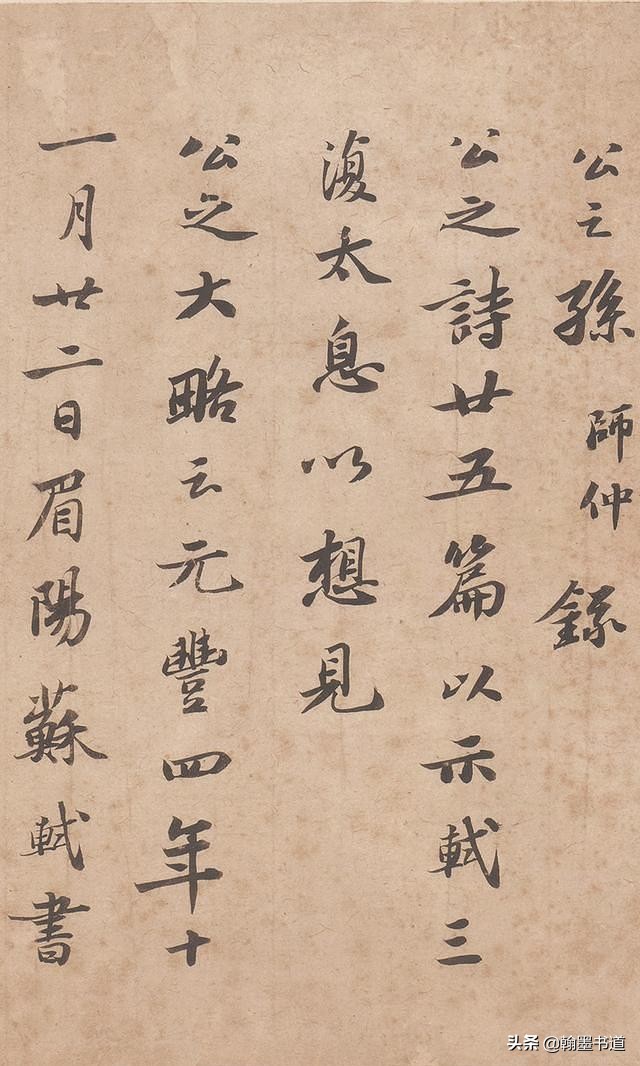 公之孫師仲錄
公之詩廿五篇以示軾三
復太息以想見
公之大略云元豐四年十
一月廿二日眉陽蘇軾書
头条 @翰墨书道